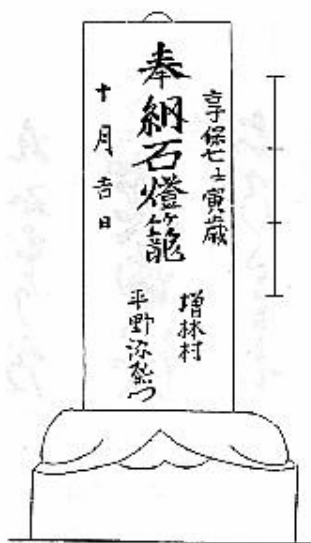 享保七壬寅歳
増林村
奉納石燈籠
平野弥
十月吉日